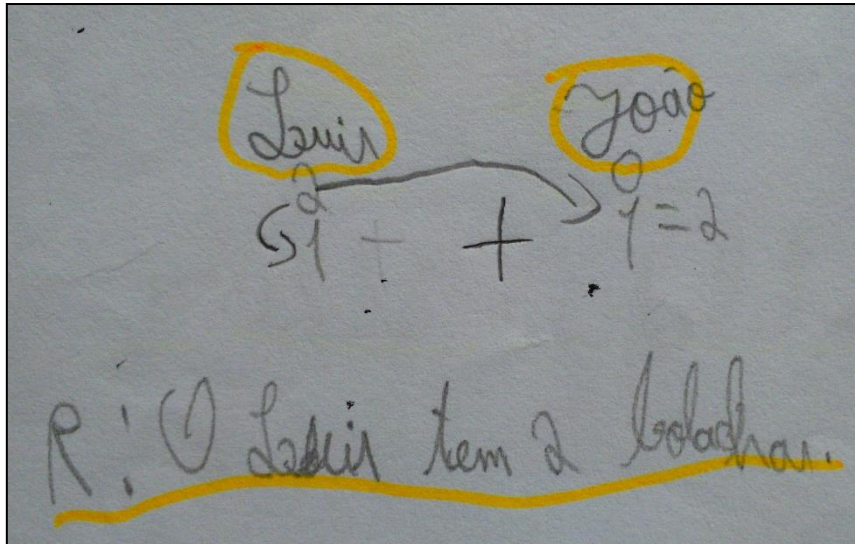 Luis João
2 0
1 + + 1 = 2
R: O Luis tem 2 bolachas.